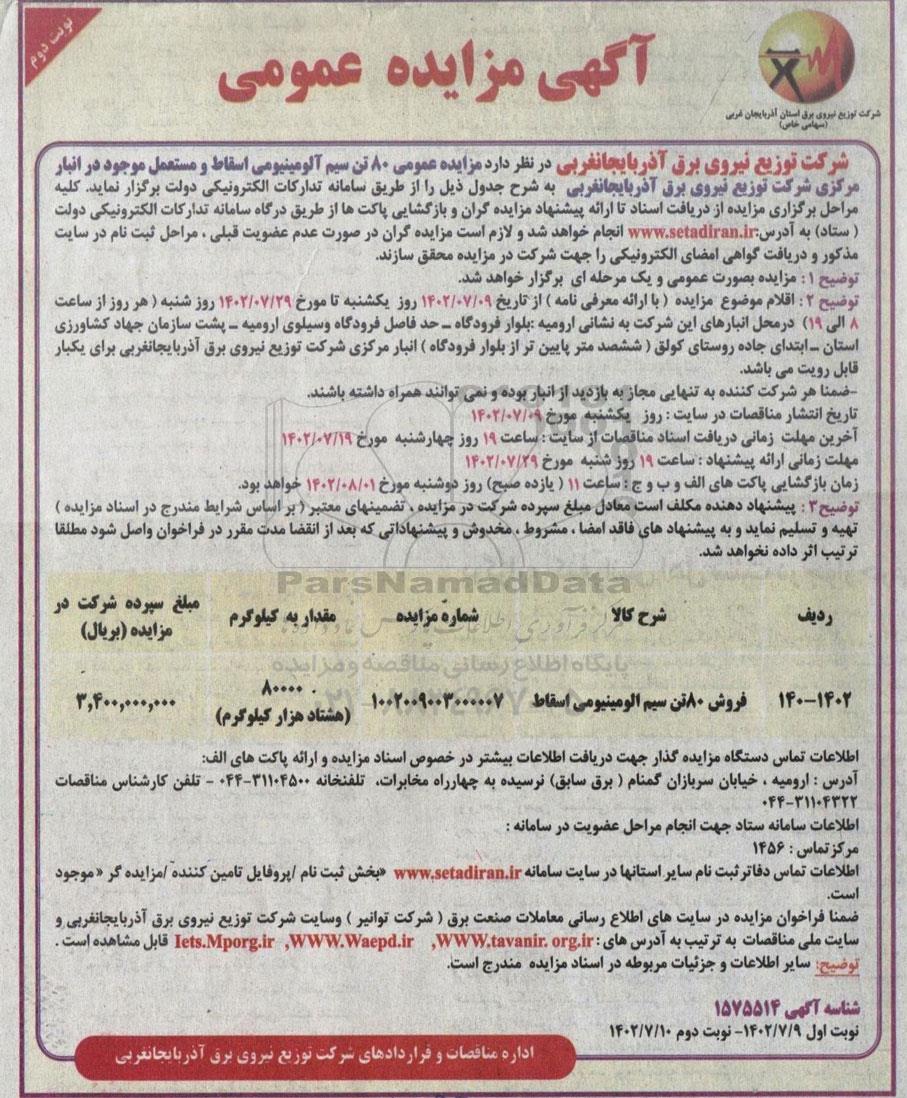 نوبت دوم
آگهی مزایده عمومی
شرکت توزیع نیروی برق استان آذربایجان غربی
(سهامی خاص)
شرکت توزیع نیروی برق آذربایجانغربی در نظر دارد مزایده عمومی ۸۰ تن سیم آلومینیومی اسقاط و مستعمل موجود در انبار
مرکزی شرکت توزیع نیروی برق آذربایجانغربی به شرح جدول ذیل را از طریق سامانه تدارکات الکترونیکی دولت برگزار نماید. کلیه
مراحل برگزاری مزایده از دریافت اسناد تا ارائه پیشنهاد مزایده گران و بازگشایی پاکت ها از طریق درگاه سامانه تدارکات الکترونیکی دولت
( ستاد) به آدرس:www.setadiran.ir انجام خواهد شد و لازم است مزایده گران در صورت عدم عضویت قبلی ، مراحل ثبت نام در سایت
مذکور و دریافت گواهی امضای الکترونیکی را جهت شرکت در مزایده محقق سازند.
توضیح ۱ : مزایده بصورت عمومی و یک مرحله ای برگزار خواهد شد.
توضیح ۲ : اقلام موضوع مزایده ( با ارائه معرفی نامه ) از تاریخ ۱۴۰۲/۰۷/۰۹ روز یکشنبه تا مورخ ۱۴۰۲/۰۷/۲۹ روز شنبه ( هر روز از ساعت
۸ الی ۱۹) درمحل انبارهای این شرکت به نشانی ارومیه :بلوار فرودگاه ـ حد فاصل فرودگاه وسیلوی ارومیه ـ پشت سازمان جهاد کشاورزی
استان ـ ابتدای جاده روستای کولق ( ششصد متر پایین تر از بلوار فرودگاه ) انبار مرکزی شرکت توزیع نیروی برق آذربایجانغربی برای یکبار
قابل رویت می باشد.
-ضمنا هر شرکت کننده به تنهایی مجاز به بازدید از انبار بوده و نمی توانند همراه داشته باشند.
تاریخ انتشار مناقصات در سایت : روز یکشنبه مورخ ۱۴۰۲/۰۷/۰۹
آخرین مهلت زمانی دریافت اسناد مناقصات از سایت : ساعت ۱۹ روز چهارشنبه مورخ ۱۴۰۲/۰۷/۱۹
مهلت زمانی ارائه پیشنهاد : ساعت ۱۹ روز شنبه مورخ ۱۴۰۲/۰۷/۲۹
زمان بازگشایی پاکت های الف و ب و ج : ساعت ۱۱ ( یازده صبح) روز دوشنبه مورخ ۱۴۰۲/۰۸/۰۱ خواهد بود.
توضیح۳ : پیشنهاد دهنده مکلف است معادل مبلغ سپرده شرکت در مزایده ، تضمینهای معتبر ( بر اساس شرایط مندرج در اسناد مزایده )
تهیه و تسلیم نماید و به پیشنهاد های فاقد امضا ، مشروط ، مخدوش و پیشنهاداتی که بعد از انقضا مدت مقرر در فراخوان واصل شود مطلقا
ترتیب اثر داده نخواهد شد.
ParsNamadData
ردیف شرح کالا شماره مزایده مقدار به کیلوگرم مبلغ سپرده شرکت در
مزایده (بریال)
پایگاه اطلاع رسانی مناقصه و مزایده
۱۴۰-۱۴۰۲ فروش ۸۰تن سیم الومینیومی اسقاط ۱۰۰۲۰۰۹۰۰۳۰۰۰۰۰۷ ۸۰۰۰۰ ۳,۴۰۰,۰۰۰,۰۰۰
(هشتاد هزار کیلوگرم)
اطلاعات تماس دستگاه مزایده گذار جهت دریافت اطلاعات بیشتر در خصوص اسناد مزایده و ارائه پاکت های الف:
آدرس : ارومیه ، خیابان سربازان گمنام ( برق سابق) نرسیده به چهارراه مخابرات، تلفنخانه ۳۱۱۰۴۵۰۰-۰۴۴ - تلفن کارشناس مناقصات
۰۴۴-۳۱۱۰۴۳۲۲
اطلاعات سامانه ستاد جهت انجام مراحل عضویت در سامانه :
مرکزتماس : ۱۴۵۶
اطلاعات تماس دفاترثبت نام سایر استانها در سایت سامانه www.setadiran.ir «بخش ثبت نام /پروفایل تامین کننده /مزایده گر » موجود
است.
ضمنا فراخوان مزایده در سایت های اطلاع رسانی معاملات صنعت برق ( شرکت توانیر ) وسایت شرکت توزیع نیروی برق آذربایجانغربی و
سایت ملی مناقصات به ترتیب به آدرس های : WWW.tavanir. org.ir, WWW.Waepd.ir, Iets.Mporg.ir قابل مشاهده است .
توضیح: سایر اطلاعات و جزئیات مربوطه در اسناد مزایده مندرج است.
شناسه آگهی ۱۵۷۵۵۱۴
نوبت اول ۱۴۰۲/۷/۹- نوبت دوم ۱۴۰۲/۷/۱۰
اداره مناقصات و قراردادهای شرکت توزیع نیروی برق آذربایجانغربی